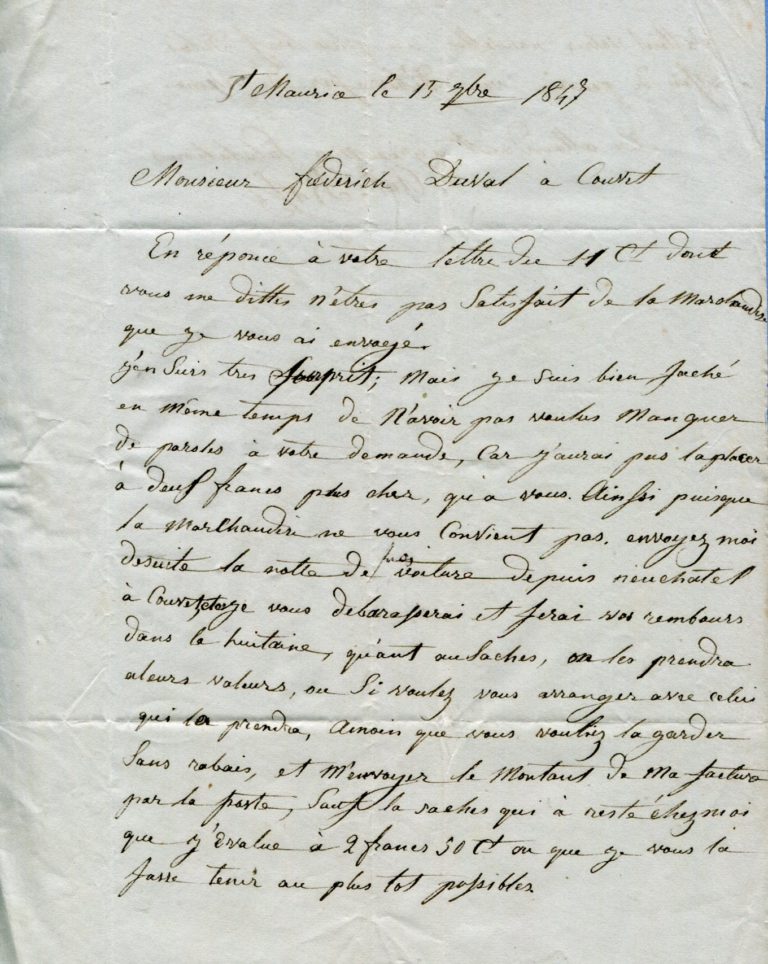 St Maurice le 15 9bre 1847
Monsieur frederich Duval à Couvet
En réponce à votre lettre du 11 Ct dont
vous me dittes n'êtres pas Satisfait de la Marchandise
que ye vous ai envoyé.
y'en Suis tres Surprit; Mais ye Suis bien faché
en même temps de N'avoir pas voulus Manquer
de paroles à votre demande, Car y'aurai pus la placer
à deux francs plus cher, qu'a vous. Ainsi puisque
la Marchandise ne vous Convient pas. envoyez moi
desuite la notte de voiture depuis neuchatel
à Couvet ye vous debarasserai et ferai vos rembours
dans la huitaine, qu'ant au Saches, on les prendra
aleurs valeurs, ou Si voulez vous arranger avec celui
qui la prendra, Amoin que vous vouliez la garder
Sans rabais, et M'envoyer le Montant de Ma facture
par la poste, Sauf la saches qui à resté chez moi
que y'évalue à 2 francs 50 Ct ou que ye vous la
fasse tenir au plus tot possible